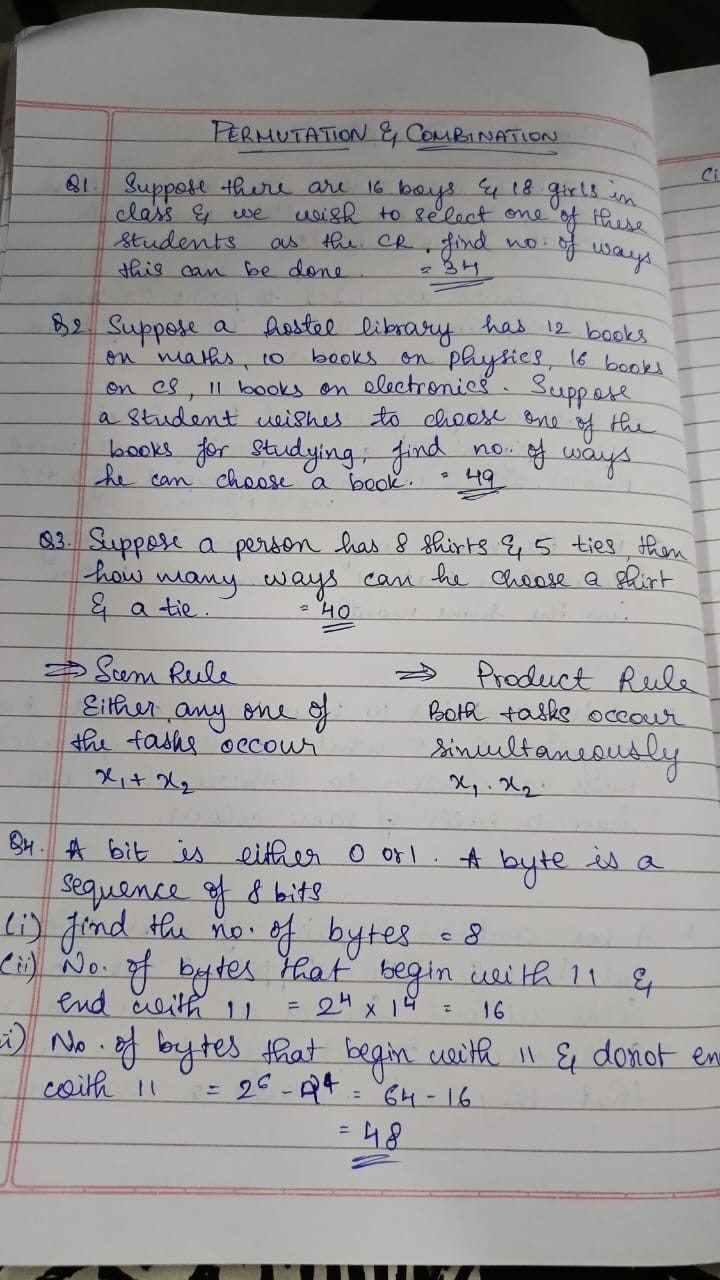 PERMUTATION & COMBINATION
Q1. Suppose there are 16 boys & 18 girls in
class & we wish to select one of these
students as the CR. find no. of ways
this can be done. = 34
Q2. Suppose a hostel library has 12 books
on maths, 10 books on physics, 16 books
on CS, 11 books on electronics. Suppose
a student wishes to choose one of the
books for studying, find no. of ways
he can choose a book. = 49
Q3. Suppose a person has 8 shirts & 5 ties, then
how many ways can he choose a shirt
& a tie. = 40
⇒ Sum Rule
Either any one of
the tasks occour
x₁ + x₂
⇒ Product Rule
Both tasks occour
simultaneously
x₁ . x₂
Q4. A bit is either 0 or 1. A byte is a
sequence of 8 bits
(i) find the no. of bytes = 8
(ii) No. of bytes that begin with 11 &
end with 11 = 2⁴ x 1⁴ = 16
i) No. of bytes that begin with 11 & donot en
with 11 = 2⁶ - 2⁴ = 64 - 16
= 48
Ci